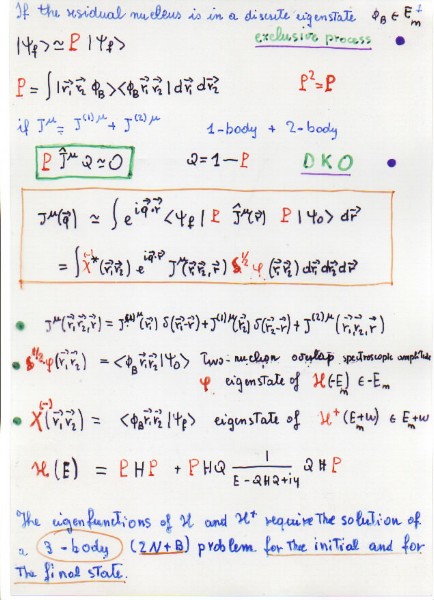 If the residual nucleus is in a discrete eigenstate ϕ_B ∈ E_m^+
|ψ_f> ≃ P |ψ_f> exclusive process
P = ∫ |r⃗₁r⃗₂ ϕ_B><ϕ_B r⃗₁r⃗₂| dr⃗₁ dr⃗₂ P² = P
if J^μ = J^(1)μ + J^(2)μ 1-body + 2-body
P Ĵ^μ Q ≃ 0 Q = 1 - P DKO
J^μ(q⃗) ≃ ∫ e^{iq⃗·r⃗} <ψ_f| P Ĵ^μ(r⃗) P |ψ_0> dr⃗
= ∫ χ^(-)*(r⃗₁r⃗₂) e^{iq⃗·r⃗} J^μ(r⃗₁r⃗₂,r⃗) S^{1/2} φ(r⃗₁r⃗₂) dr⃗₁dr⃗₂dr⃗
J^μ(r⃗₁r⃗₂,r⃗) = J^(1)μ(r⃗₁) δ(r⃗₁-r⃗) + J^(1)μ(r⃗₂) δ(r⃗₂-r⃗) + J^(2)μ(r⃗₁r⃗₂,r⃗)
S^{1/2} φ(r⃗₁r⃗₂) = <ϕ_B r⃗₁r⃗₂|ψ_0> Two-nucleon overlap spectroscopic amplitude
φ eigenstate of H(-E_m) ∈ -E_m
χ^(-)(r⃗₁r⃗₂) = <ϕ_B r⃗₁r⃗₂|ψ_f> eigenstate of H^+(E_m+ω) ∈ E_m+ω
H(E) = PHP + PHQ 1/(E-QHQ+iη) QHP
The eigenfunctions of H and H^+ require the solution of
a 3-body (2N+B) problem for the initial and for
the final state.